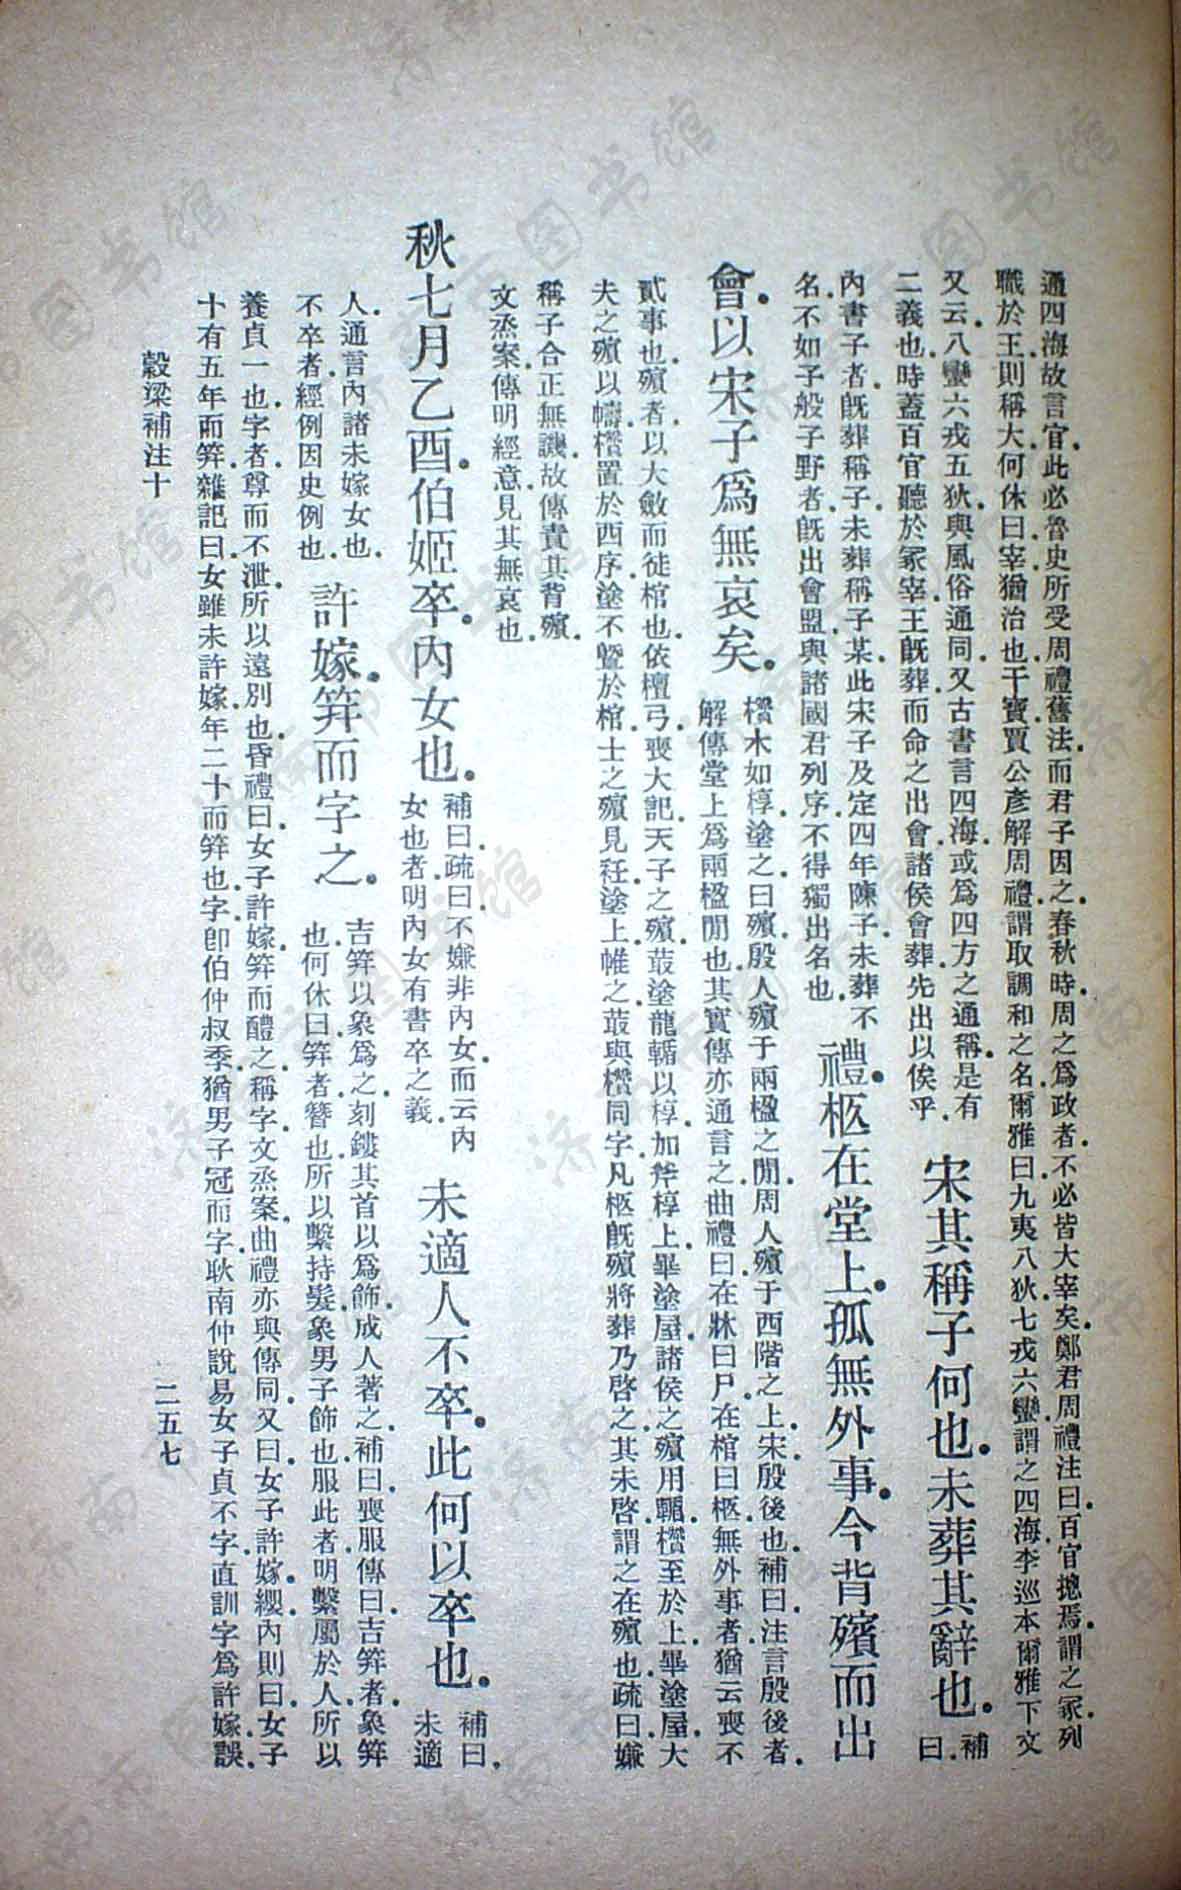 通四海故言官此必魯史所受周禮舊法而君子因之春秋時周之爲政者不必皆大宰矣鄭君周禮注曰百官揔焉謂之冢列
職於王則稱大何休曰宰猶治也干寶賈公彥解周禮謂取調和之名爾雅曰九夷八狄七戎六蠻謂之四海李巡本爾雅下文
又云八蠻六戎五狄與風俗通同又古書言四海或爲四方之通稱是有
二義也時蓋百官聽於冢宰王旣葬而命之出會諸侯會葬先出以俟乎
宋其稱子何也未葬其辭也
補
曰
內書子者旣葬稱子未葬稱子某此宋子及定四年陳子未葬不
名不如子般子野者旣出會盟與諸國君列序不得獨出名也
禮柩在堂上孤無外事今背殯而出
會以宋子爲無哀矣
欑木如椁塗之曰殯殷人殯于兩楹之閒周人殯于西階之上宋殷後也補曰注言殷後者
解傳堂上爲兩楹閒也其實傳亦通言之曲禮曰在牀曰尸在棺曰柩無外事者猶云喪不
貳事也殯者以大斂而徙棺也依檀弓喪大記天子之殯菆塗龍輴以椁加斧椁上畢塗屋諸侯之殯用輴欑至於上畢塗屋大
夫之殯以幬欑置於西序塗不曁於棺士之殯見衽塗上帷之菆與欑同字凡柩旣殯將葬乃啓之其未啓謂之在殯也疏曰嫌
稱子合正無譏故傳責其背殯
文烝案傳明經意見其無哀也
秋七月乙酉伯姬卒內女也
補曰疏曰不嫌非內女而云內
女也者明內女有書卒之義
未適人不卒此何以卒也
補曰
未適
人通言內諸未嫁女也
不卒者經例因史例也
許嫁笄而字之
吉笄以象爲之刻鏤其首以爲飾成人著之補曰喪服傳曰吉笄者象笄
也何休曰笄者簪也所以繫持髮象男子飾也服此者明繫屬於人所以
養貞一也字者尊而不泄所以遠別也昏禮曰女子許嫁笄而醴之稱字文烝案曲禮亦與傳同又曰女子許嫁纓內則曰女子
十有五年而笄雜記曰女雖未許嫁年二十而笄也字卽伯仲叔季猶男子冠而字耿南仲說易女子貞不字直訓字爲許嫁誤
穀梁補注十
二五七